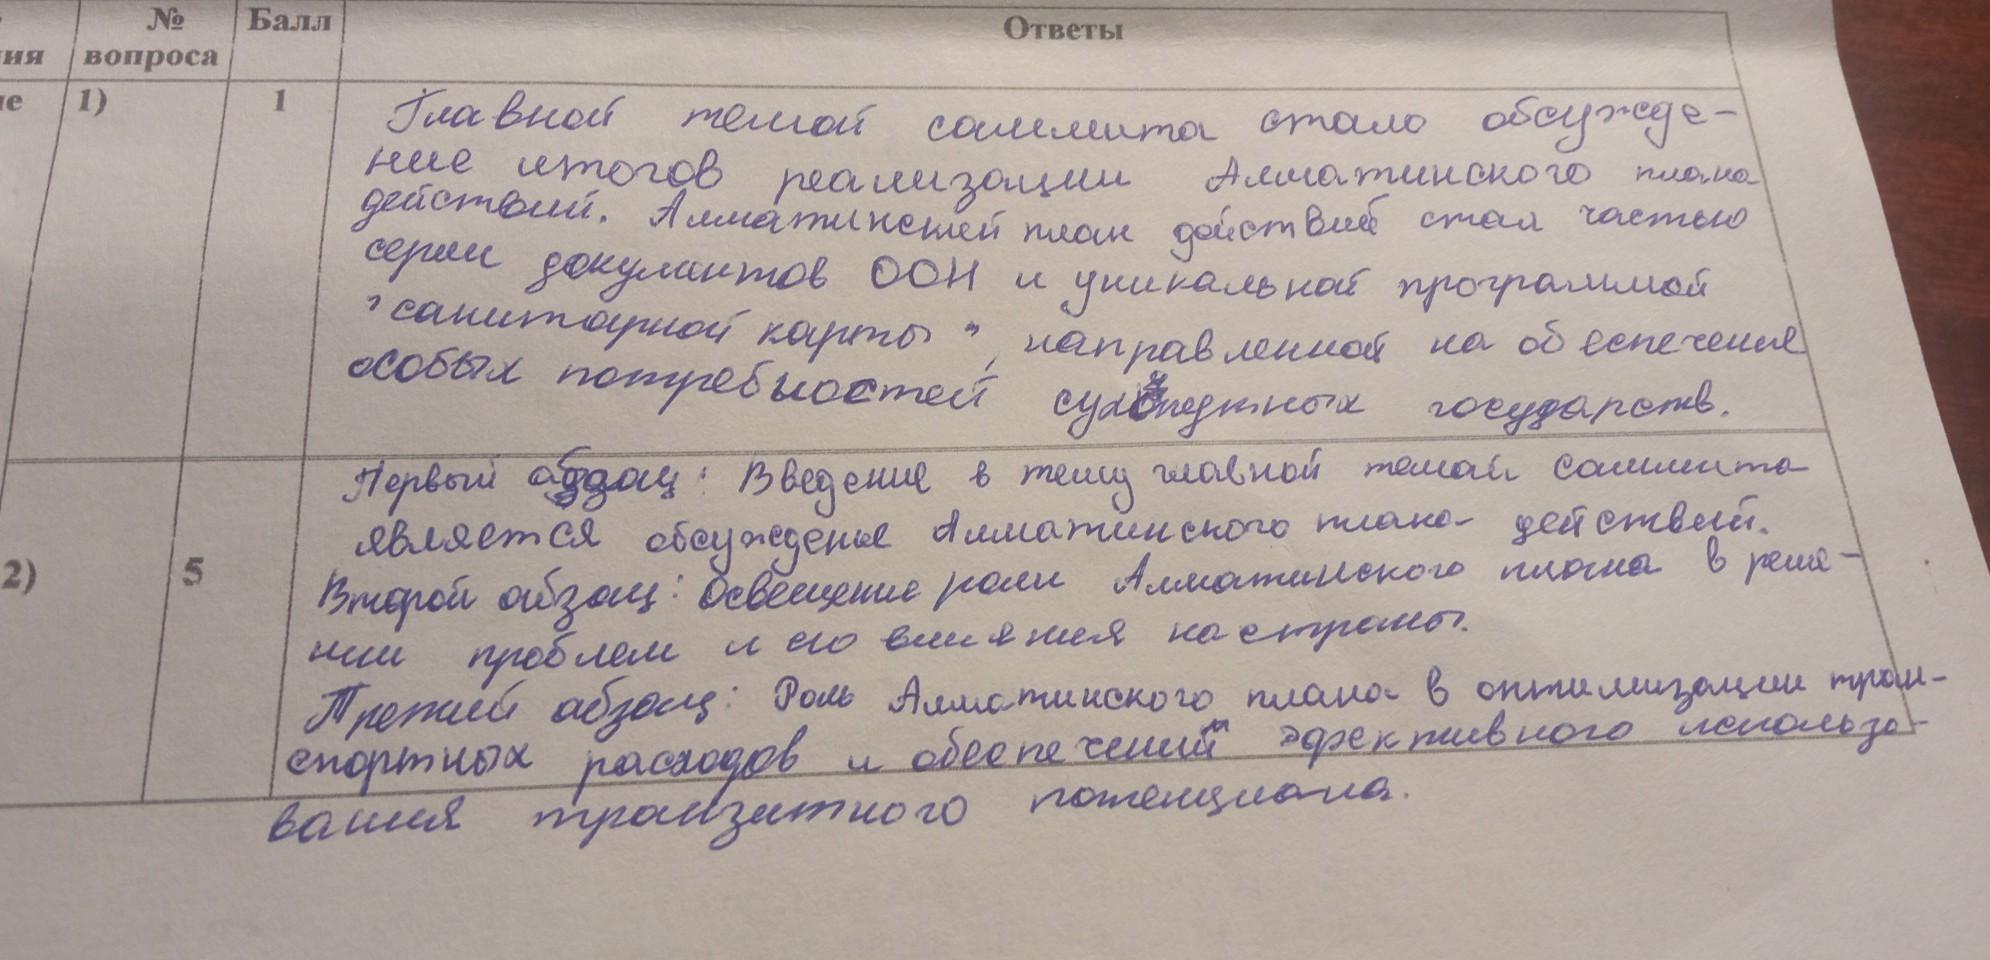 № Балл Ответы
ия вопроса
е 1) 1
Главной темой саммита стало обсужде-
ние итогов реализации Алматинского плана
действий. Алматинский план действий стал частью
серии документов ООН и уникальной программой
"санитарной карты", направленной на обеспечение
особых потребностей государств.
Первый абзац: Введение в тему главной темой саммита
является обсуждение Алматинского плана действий.
2) 5
Второй абзац: Освещение роли Алматинского плана в реше-
нии проблем и его влияния на страны.
Третий абзац: Роль Алматинского плана в оптимизации тран-
спортных расходов и обеспечений эффективного использо-
вания транзитного потенциала.